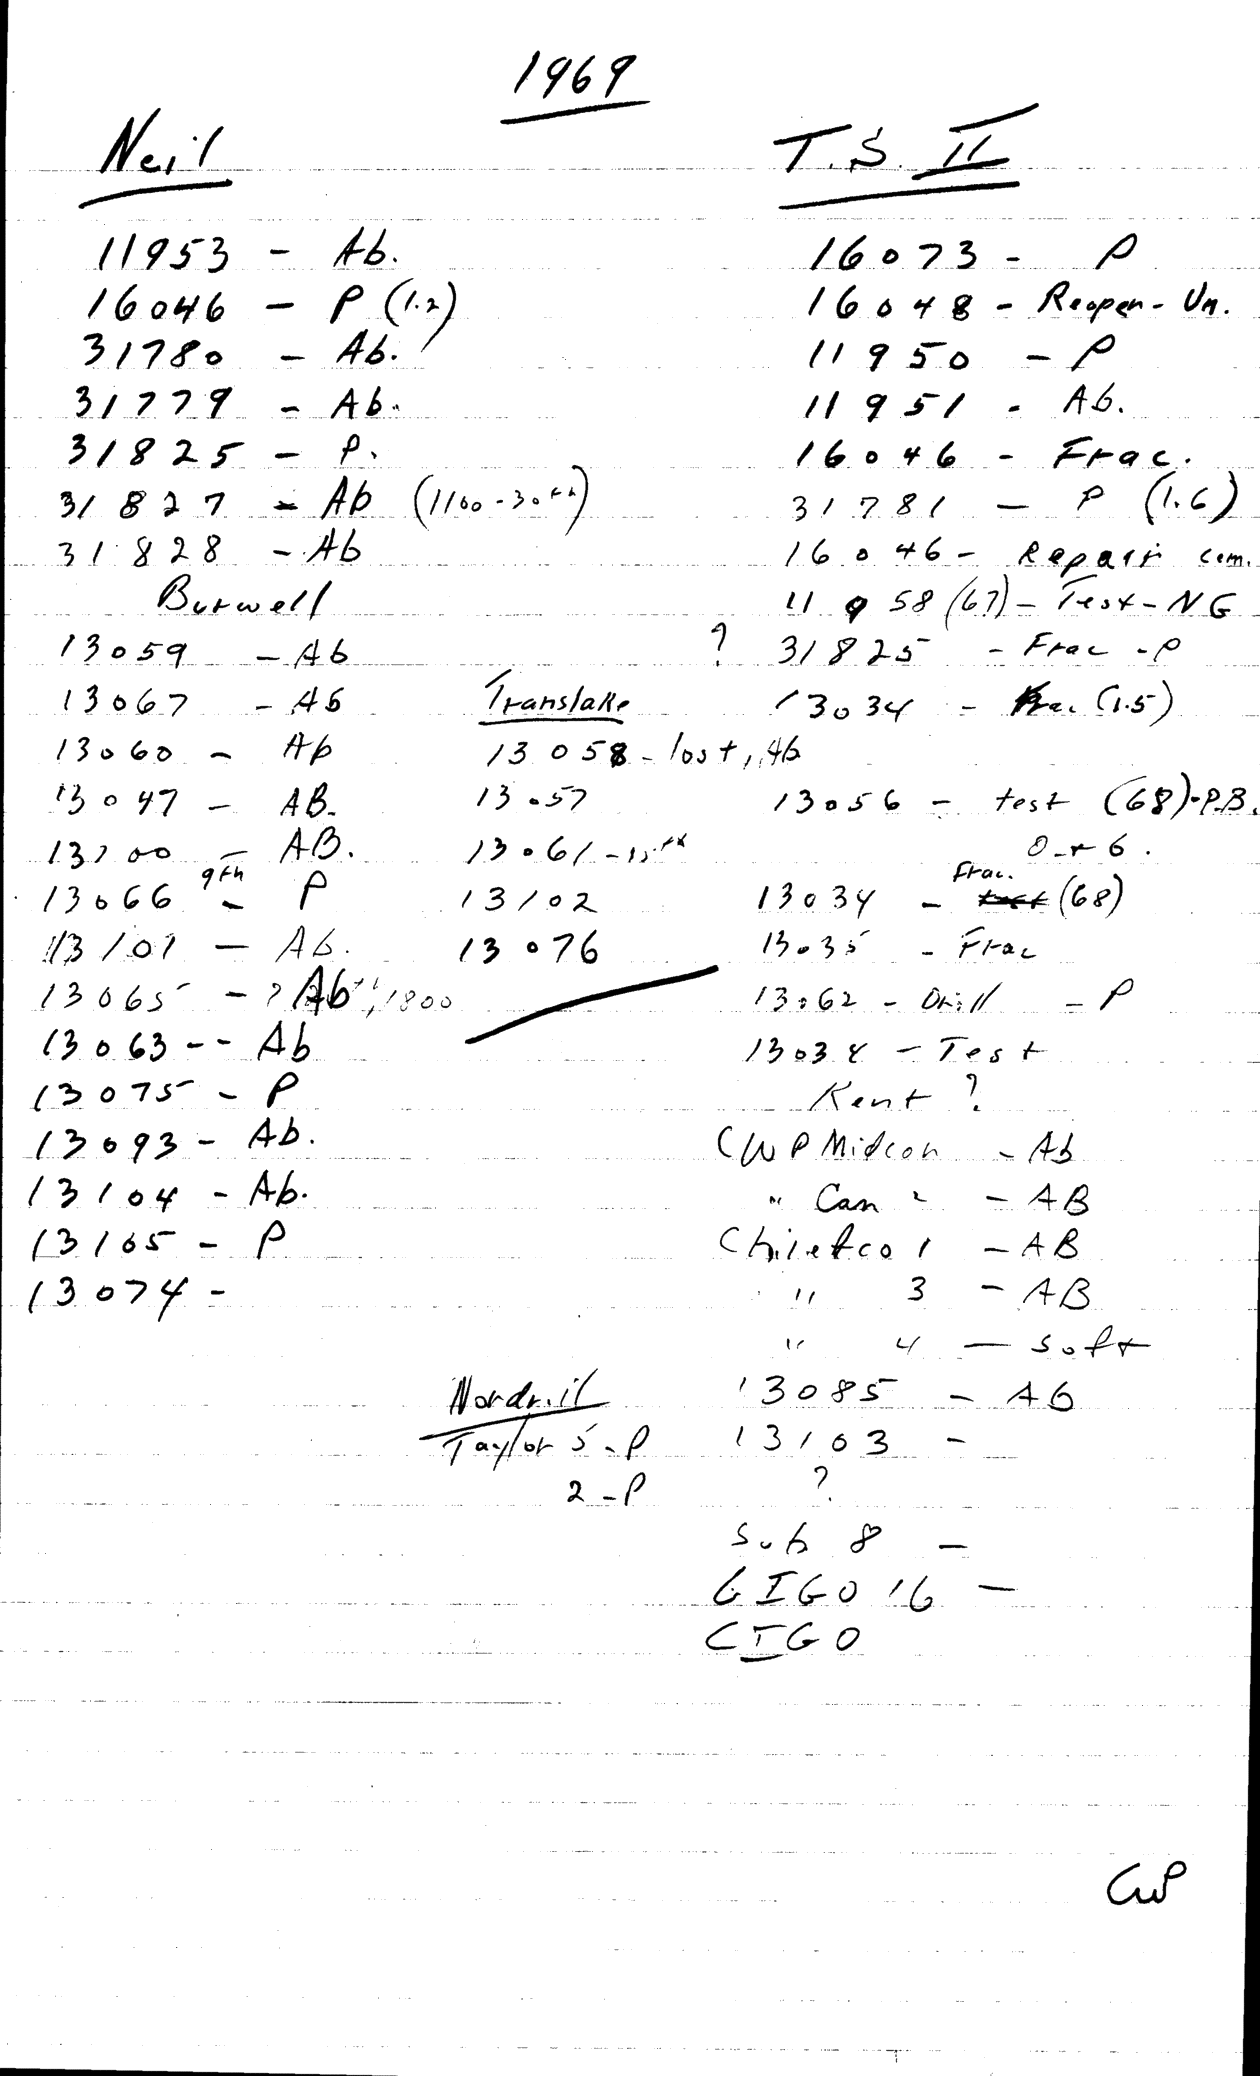 1969
Neil
11953 - Ab.
16046 - P (1.2)
31780 - Ab.
31779 - Ab.
31825 - P.
31827 - Ab (1100-30th)
31828 - Ab
Burwell
13059 - Ab
13067 - Ab
13060 - Ab
13047 - AB.
13100 - AB.
13066 9th - P
13101 - Ab.
13065 - ? Ab 1800
13063 -- Ab
13075 - P
13093 - Ab.
13104 - Ab.
13105 - P
13074 -
Translake
13058 - lost, Ab
13057
13061 - 15th
13102
13076
Nordril
Taylor 5 - P
2 - P
T.S. II
16073 - P
16048 - Reopen - Un.
11950 - P
11951 - Ab.
16046 - Frac.
31781 - P (1.6)
16046 - Repair cem.
11958 (67) - Test - NG
? 31825 - Frac - P
13034 - Frac (1.5)
13056 - test (68) - P.B.
O-r 6.
13034 - Frac. (68)
13035 - Frac
13062 - Drill - P
13034 - Test
Kent ?
CWP Midcon - Ab
" Can " - AB
Chiefco 1 - AB
" 3 - AB
" 4 - Soft
13085 - Ab
13103 -
?
Sub 8 -
GIGO 16 -
CIGO
CWP